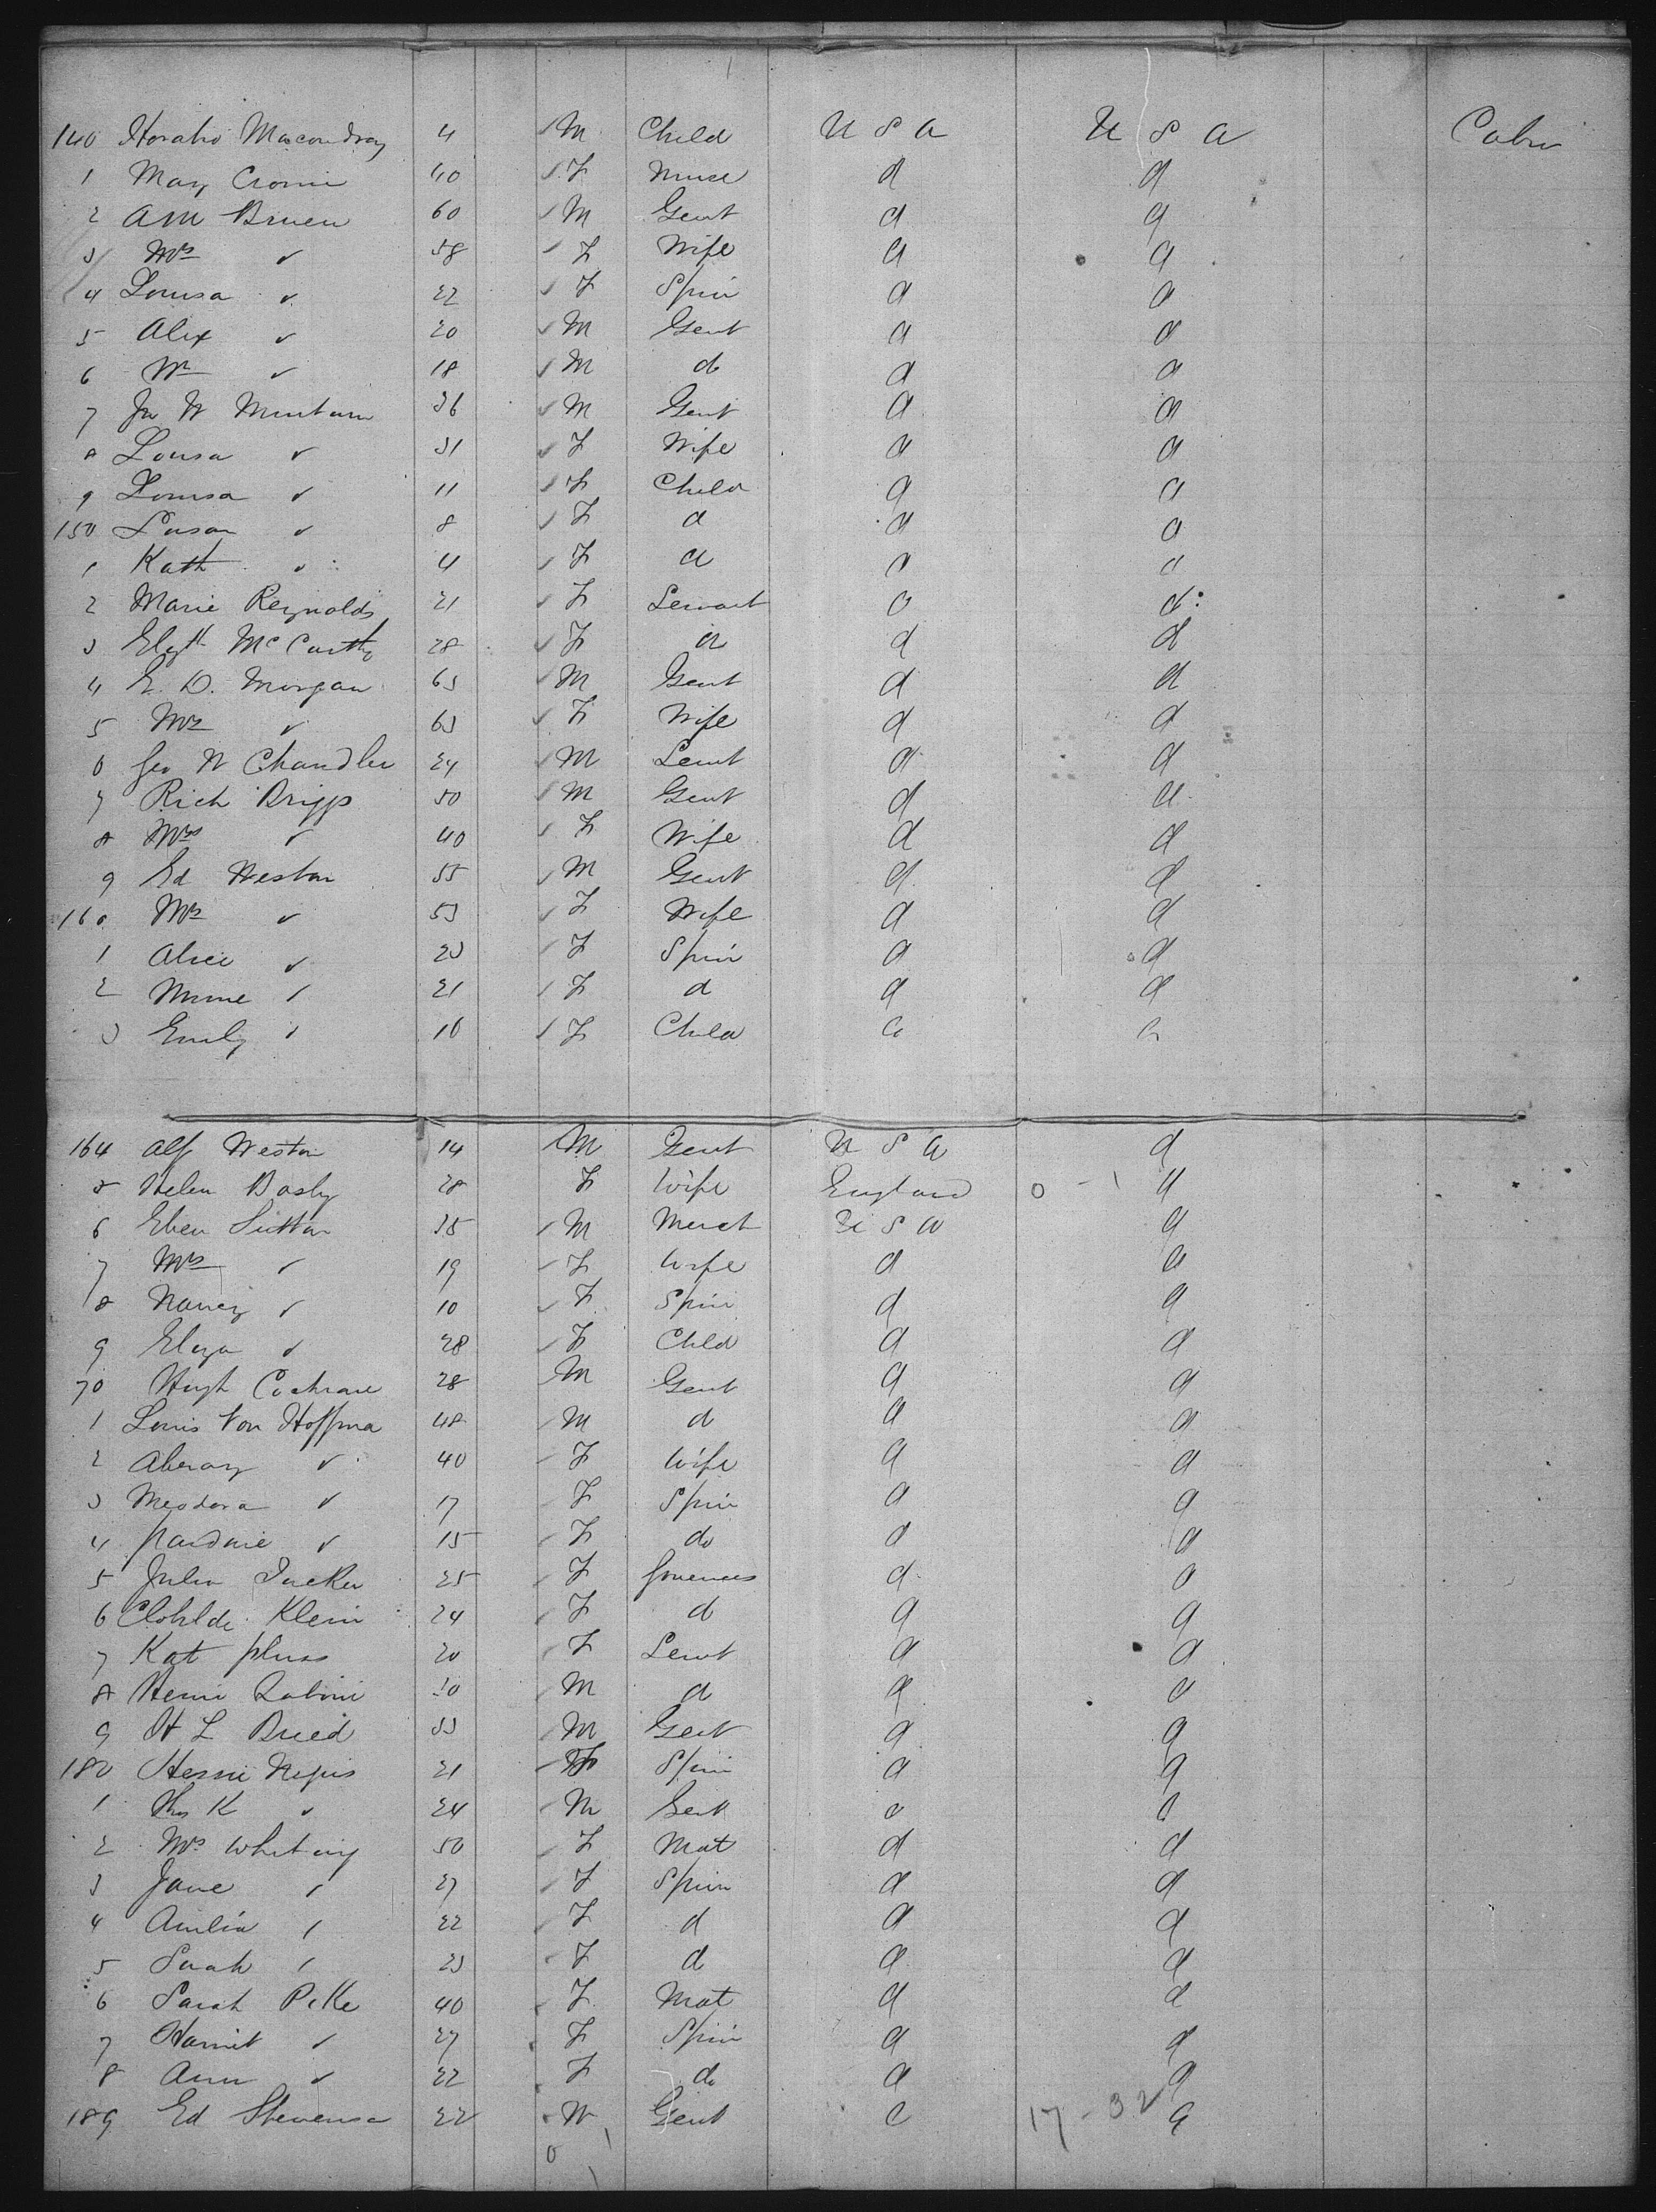 140 Horatio Macondray 4 M Child U S A U S A Cabin
1 Mary Cronin 40 F Nurse d d
2 AM Bruen 60 M Gent d d
3 Mrs " 58 F Wife d d
4 Louisa " 22 F Spin d d
5 Alex " 20 M Gent d d
6 Wm " 18 M do d d
7 Jn W Minturn 36 M Gent d d
8 Louisa " 31 F Wife d d
9 Louisa " 11 F Child d d
150 Susan " 8 F d d d
1 Kath " 4 F d d d
2 Marie Reynolds 21 F Servant d d
3 Elizth McCarthy 28 F d d d
4 E. D. Morgan 63 M Gent d d
5 Mrs " 63 F Wife d d
6 Geo W Chandler 24 M Servt d d
7 Rich Briggs 50 M Gent d d
8 Mrs " 40 F Wife d d
9 Ed Weston 55 M Gent d d
160 Mrs " 53 F Wife d d
1 Alice " 23 F Spin d d
2 " 21 F d d d
3 Emily " 10 F Child d d
164 Alf Weston 14 M Gent U S A d
5 Helen Bosly 28 F Wife England 0 - 1 d
6 Eben Sutton 35 M Merct U S A d
7 Mrs " 19 F Wife d d
8 Nancy " 10 F Spin d d
9 Eliza " 28 F Child d d
70 Hugh Cochrane 28 M Gent d d
1 Louis Von Hoffma 48 M d d d
2 " 40 F Wife d d
3 Medora " 17 F Spin d d
4 " 15 F do d d
5 Julia Tucker 25 F Governess d d
6 Clotilde Klein 24 F d d d
7 Kat 20 F Servt d d
8 Henri 30 M d d d
9 H L Breed 33 M Gent d d
180 21 F Spin d d
1 Thos K " 24 M Gent d d
2 Mrs Whiting 50 F Mat d d
3 Jane " 27 F Spin d d
4 Amelia " 22 F d d d
5 Sarah " 23 F d d d
6 Sarah Pike 40 F Mat d d
7 Harriet " 27 F Spin d d
8 Ann " 22 F do d d
189 Ed Stevenson 22 M Gent d 17 - 32 d
0